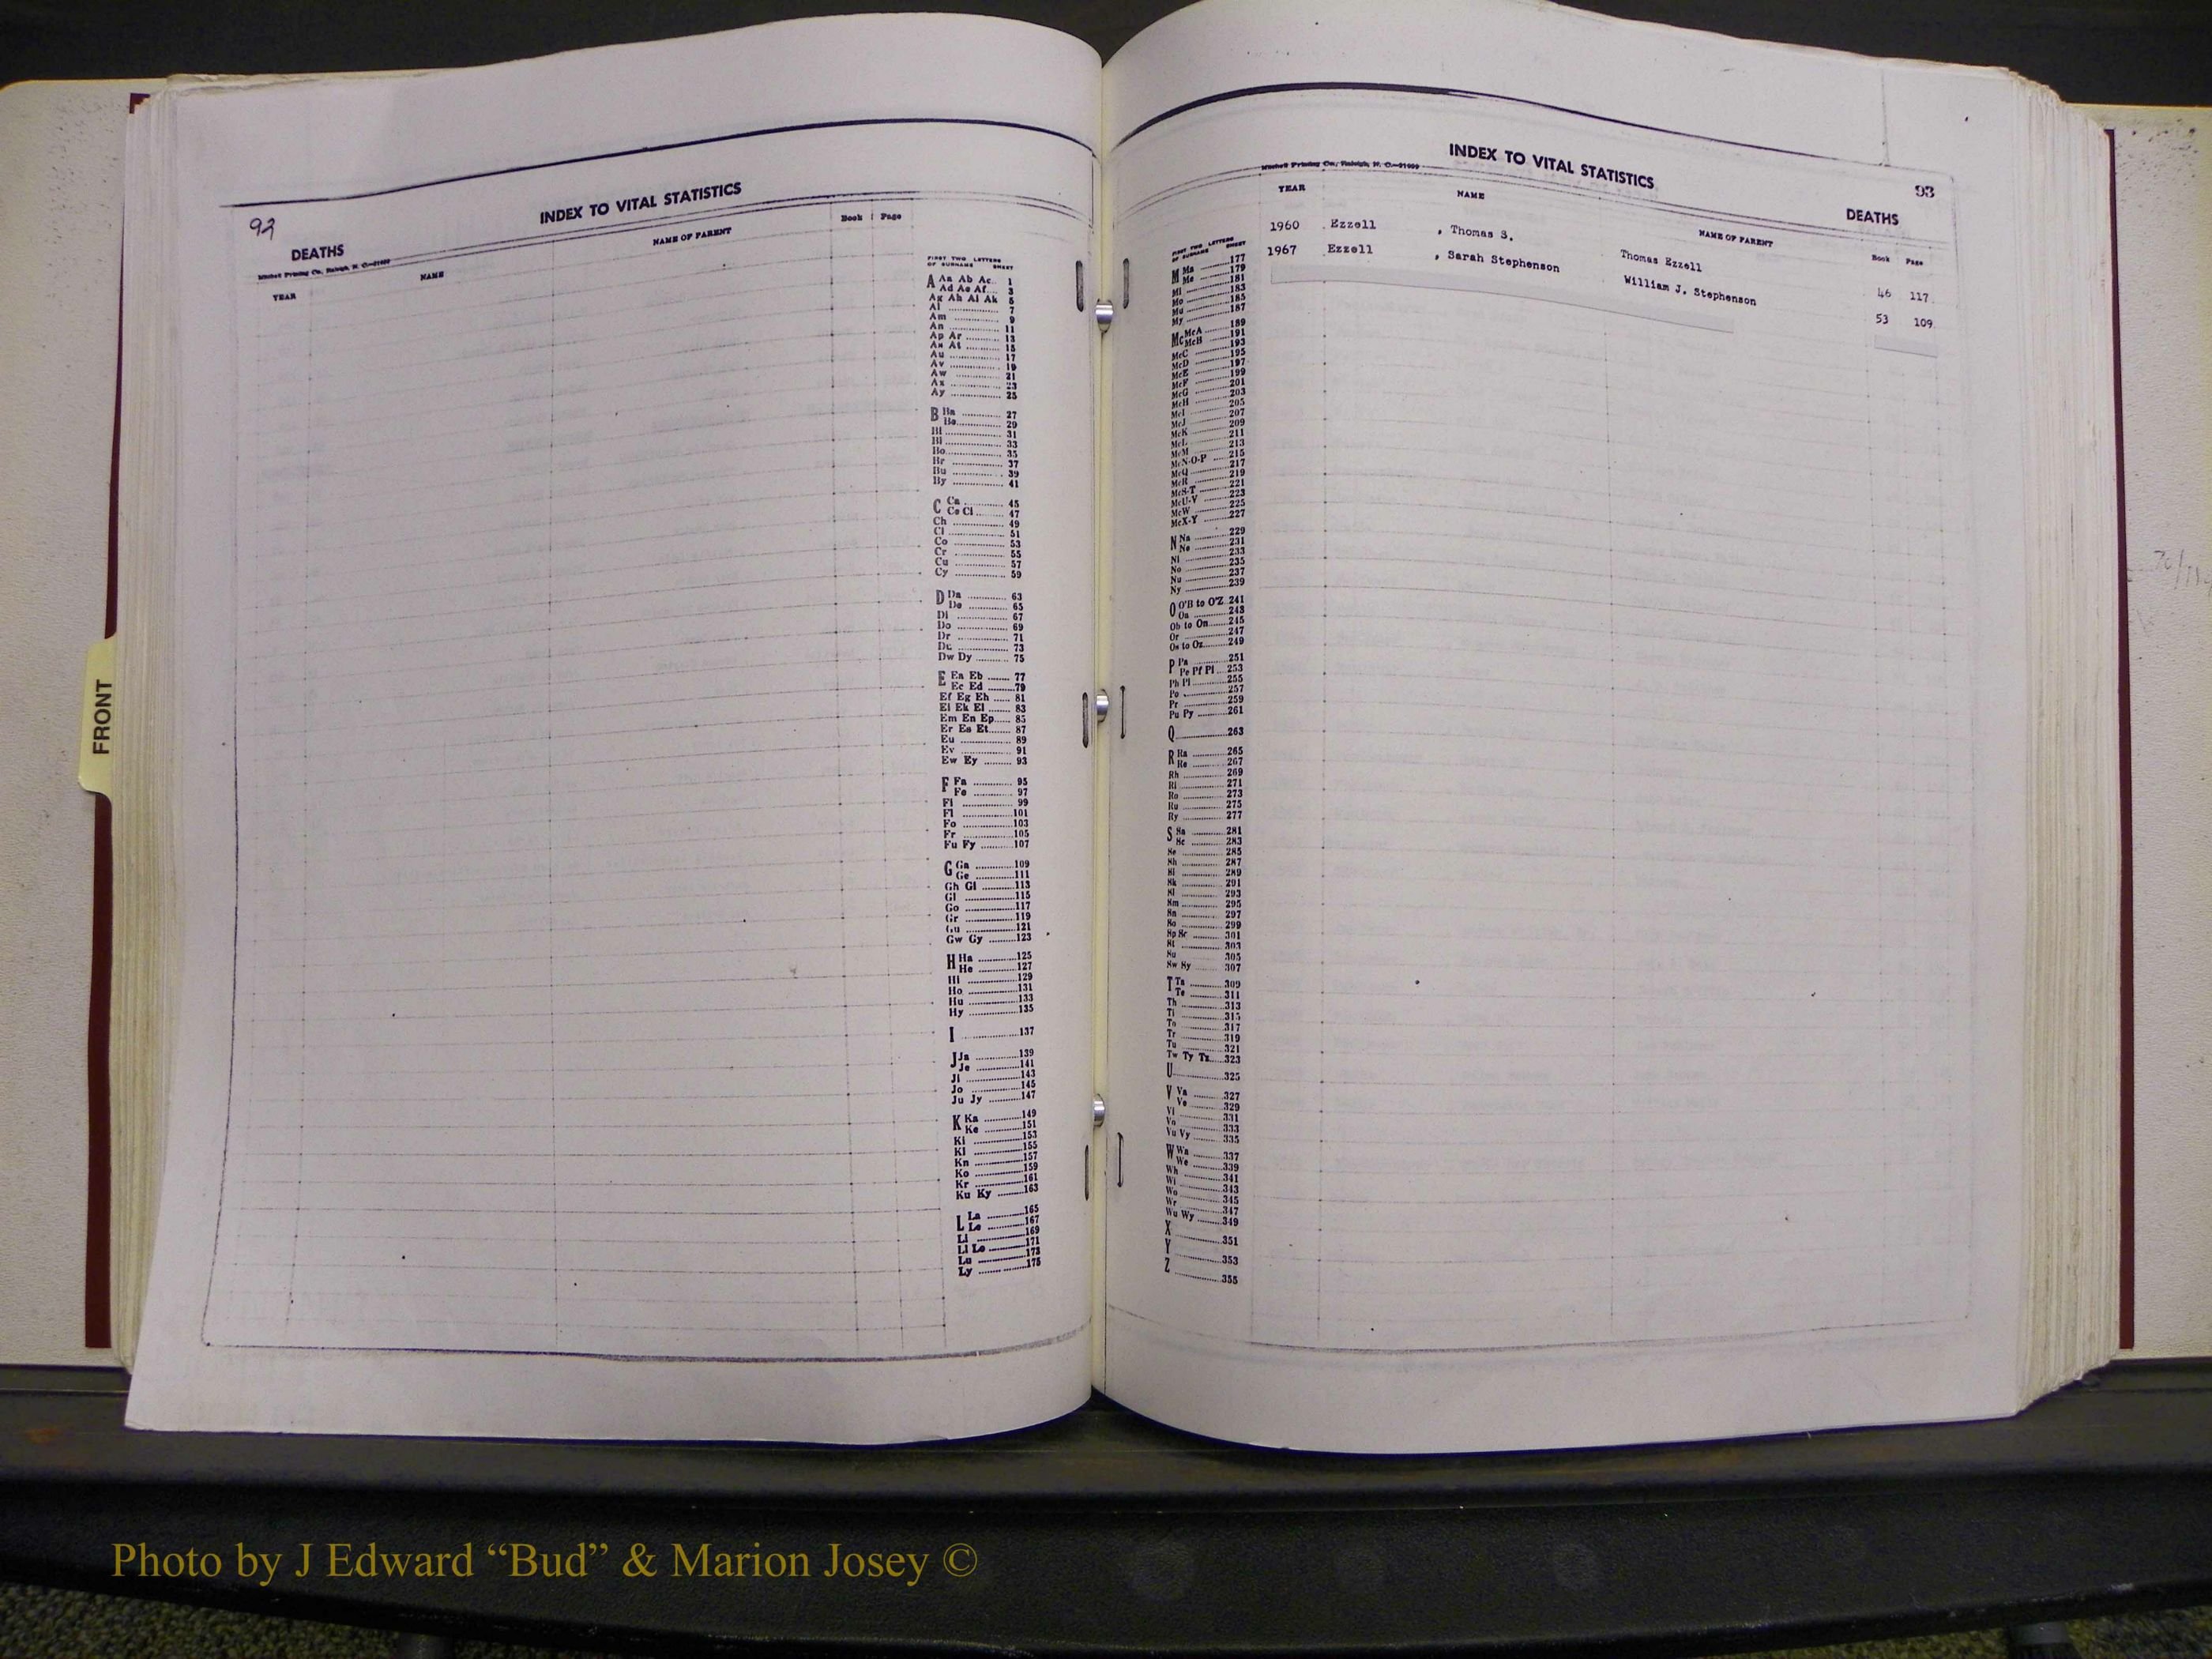 92
INDEX TO VITAL STATISTICS
DEATHS
Mitchell Printing Co., Raleigh, N. C.
YEAR NAME NAME OF PARENT Book Page
FIRST TWO LETTERS
OF SURNAME SHEET
A Aa Ab Ac 1
Ad Ae Af 3
Ag Ah Ai Ak 5
Al 7
Am 9
An 11
Ap Ar 13
As At 15
Au 17
Av 19
Aw 21
Ax 23
Ay 25
B Ba 27
Be 29
Bi 31
Bl 33
Bo 35
Br 37
Bu 39
By 41
C Ca 45
Ce Ci 47
Ch 49
Cl 51
Co 53
Cr 55
Cu 57
Cy 59
D Da 63
De 65
Di 67
Do 69
Dr 71
Du 73
Dw Dy 75
E Ea Eb 77
Ec Ed 79
Ef Eg Eh 81
Ei Ek El 83
Em En Ep 85
Er Es Et 87
Eu 89
Ev 91
Ew Ey 93
F Fa 95
Fe 97
Fi 99
Fl 101
Fo 103
Fr 105
Fu Fy 107
G Ga 109
Ge 111
Gh Gi 113
Gl 115
Go 117
Gr 119
Gu 121
Gw Gy 123
H Ha 125
He 127
Hi 129
Ho 131
Hu 133
Hy 135
I 137
J Ja 139
Je 141
Ji 143
Jo 145
Ju Jy 147
K Ka 149
Ke 151
Ki 153
Kl 155
Kn 157
Ko 159
Kr 161
Ku Ky 163
L La 165
Le 167
Li 169
Ll Lo 171
Lu 173
Ly 175
93
INDEX TO VITAL STATISTICS
DEATHS
Mitchell Printing Co., Raleigh, N. C.
YEAR NAME NAME OF PARENT Book Page
1960 Ezzell , Thomas S. Thomas Ezzell 46 117
1967 Ezzell , Sarah Stephenson William J. Stephenson 53 109
FIRST TWO LETTERS
OF SURNAME SHEET
M Ma 177
Me 179
Mi 181
Mo 183
Mu 185
My 187
Mc McA 189
McB 191
McC 193
McD 195
McE 197
McF 199
McG 201
McH 203
McI 205
McJ 207
McK 209
McL 211
McM 213
McN-O-P 215
McQ 217
McR 219
McS-T 221
McU-V 223
McW 225
McX-Y 227
N Na 229
Ne 231
Ni 233
No 235
Nu 237
Ny 239
O O'B to O'Z 241
Oa 243
Ob to On 245
Or 247
Os to Oz 249
P Pa 251
Pe Pf Pi 253
Ph Pl 255
Po 257
Pr 259
Pu Py 261
Q 263
R Ra 265
Re 267
Rh 269
Ri 271
Ro 273
Ru 275
Ry 277
S Sa 281
Sc 283
Se 285
Sh 287
Si 289
Sk 291
Sl 293
Sm 295
Sn 297
So 299
Sp Sr 301
St 303
Su 305
Sw Sy 307
T Ta 309
Te 311
Th 313
Ti 315
To 317
Tr 319
Tu 321
Tw Ty Tz 323
U 325
V Va 327
Ve 329
Vi 331
Vo 333
Vu Vy 335
W Wa 337
We 339
Wh 341
Wi 343
Wo 345
Wr 347
Wu Wy 349
X 351
Y 353
Z 355
FRONT
Photo by J Edward “Bud” & Marion Josey ©